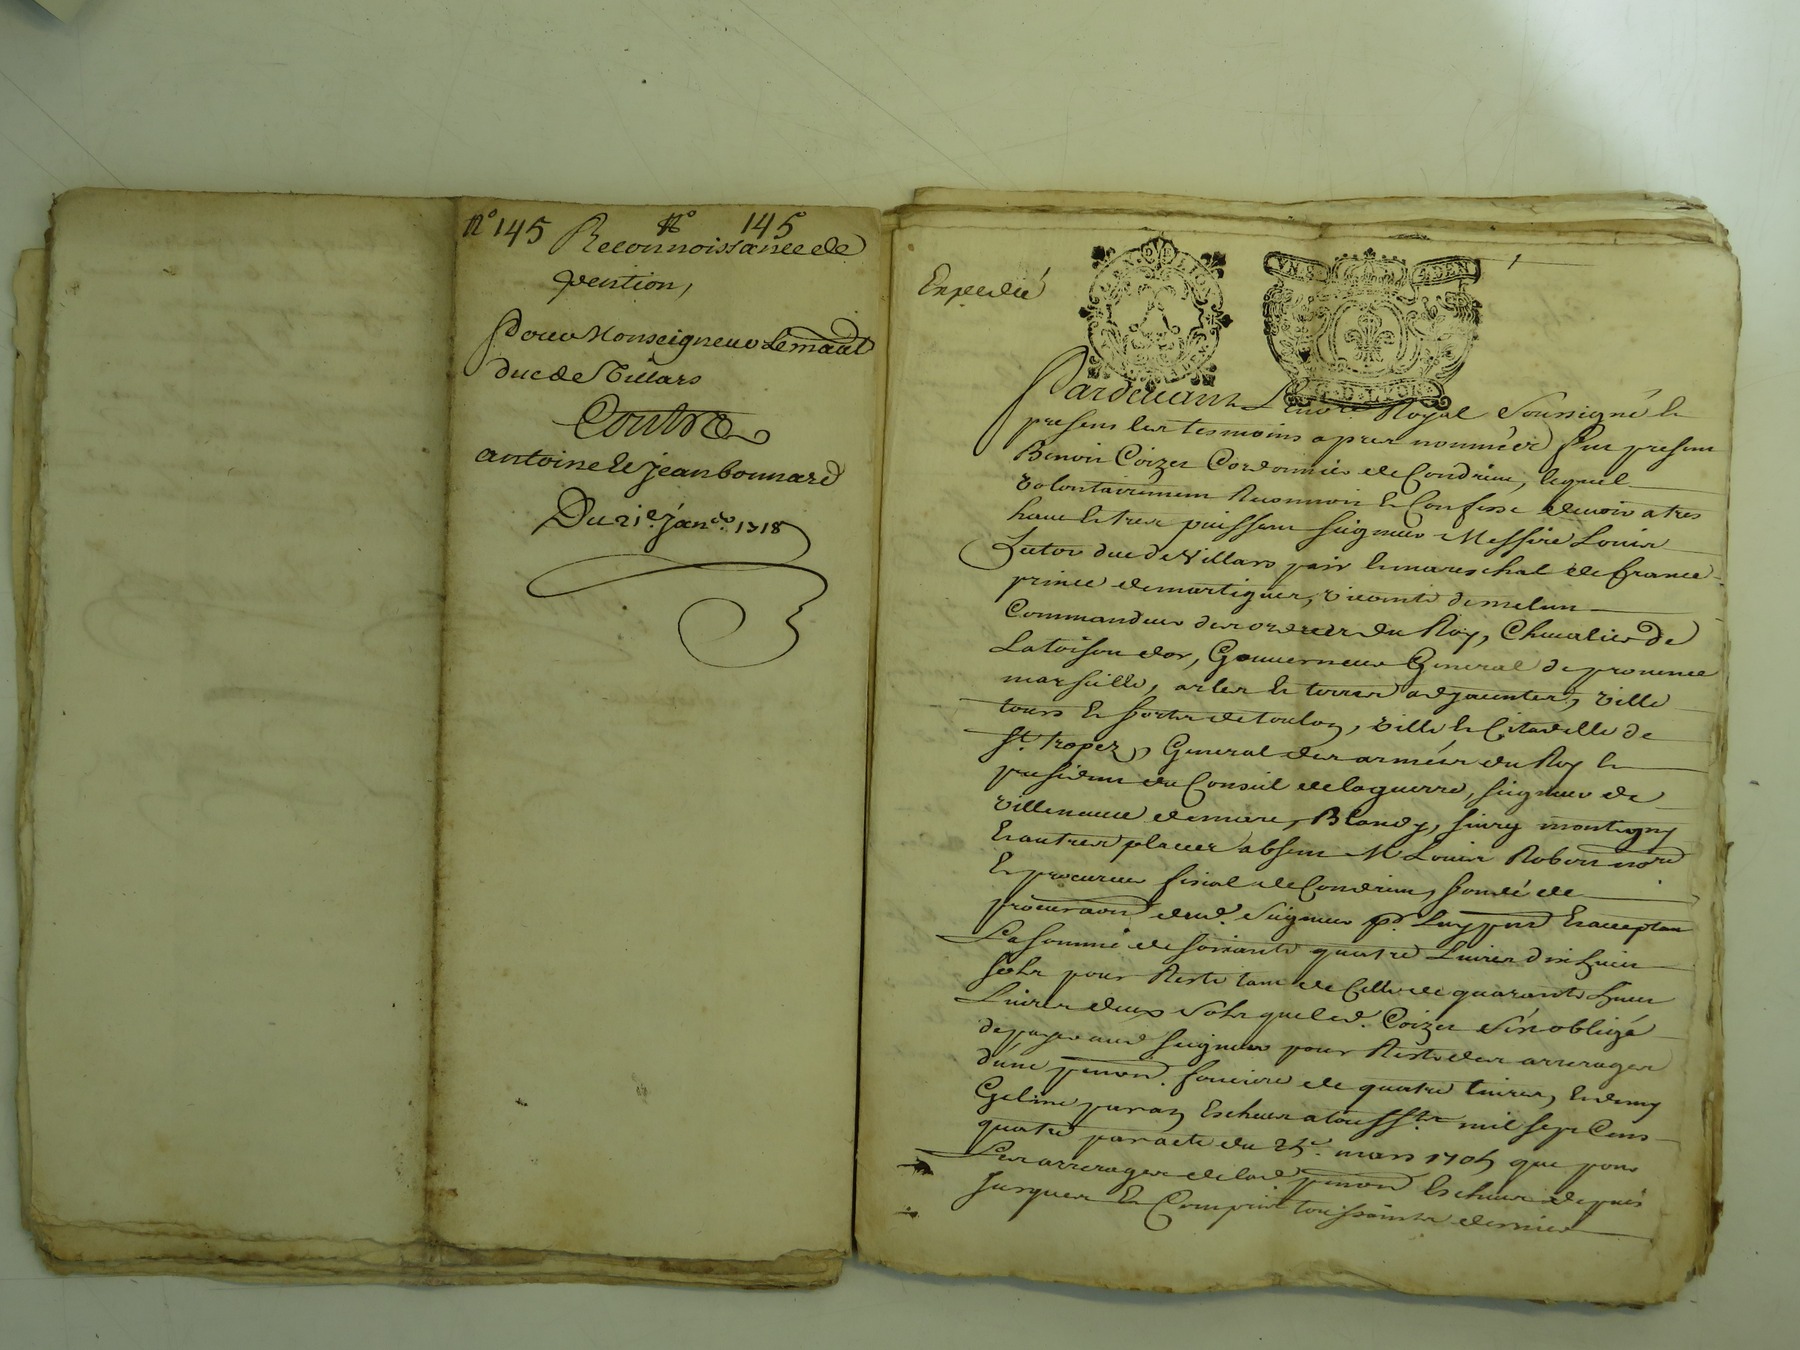 n° 145 n° 145
Reconnoissance de
pention,
Pour Monseigneur Le maal
duc de Villars
Contre
antoine et jean bonnard
Du 21e janer 1718
Expedié
1
Pardevant Le nore Royal Soussigné et
presens les tesmoins apres nommés fut present
Benoit Coizet Cordonnier de Condrieu, lequel
volontairement Reconnoit et Confesse devoir a tres
haut et tres puissant seigneur Messire Louis
hector duc de Villars pair et mareschal de france
prince de martigues, vicomte de melun
Commandeur des ordres du Roy, Chevalier de
La toison d'or, Gouverneur General de provence
marseille, arles et terres adjacentes, ville
tours et forts de toulon, ville et Citadelle de
st. tropez, General des armées du Roy et
president du Conseil de la guerre, seigneur de
Villeneuve Blandy, sivry montigny
et autres places absent Me Louis Robert nore
et procureur fiscal de Condrieu, fondé de
procuraon dud. Seigneur pt. Luy pnt et acceptant
La somme de soixante quatre Livres dix huit
sols pour Reste tant de Celle de quarante huit
Livres deux Sols que led. Coizet s'est obligé
de payer aud seigneur pour Reste des arrerages
d'une pention fonciere de quatre livres, et demy
Geline par an Escheus a toussts mil sept Cens
quatre par acte du mars 1705 que pour
Les arrerages de lad pention Escheus depuis
jusques et Compris toussaints dernier